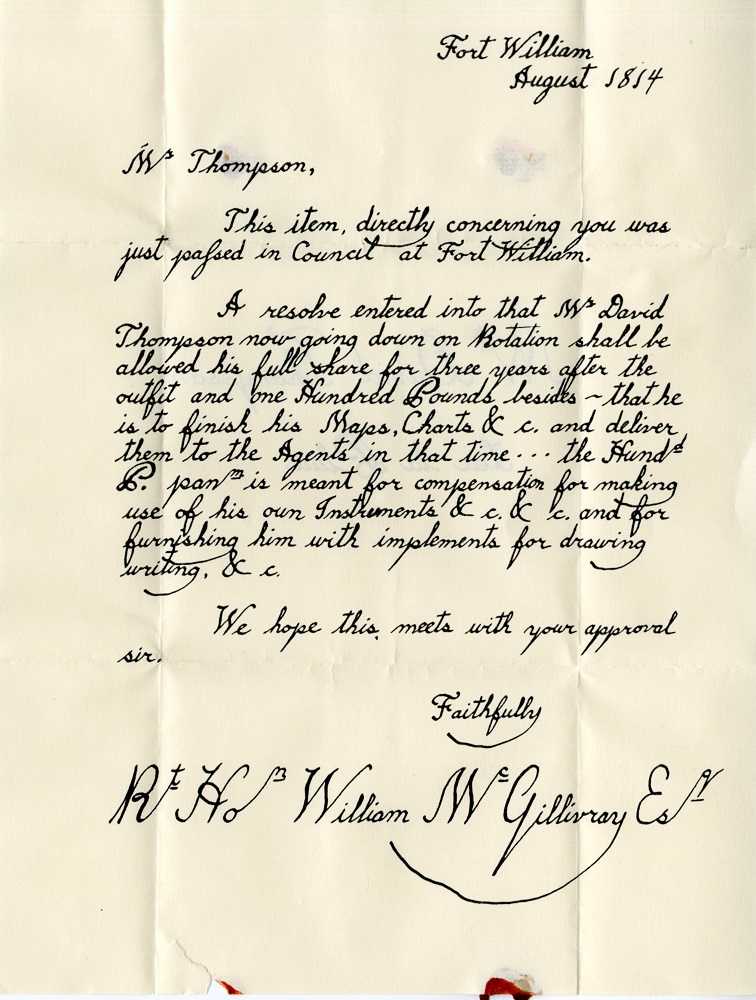 Fort William
August 1814
Mr Thompson,
This item, directly concerning you was
just paſsed in Council at Fort William.
A resolve entered into that Mr David
Thompson now going down on Rotation shall be
allowed his full share for three years after the
outfit and one Hundred Pounds besides ~ that he
is to finish his Maps, Charts & c. and deliver
them to the Agents in that time... the Hundd
P. panm is meant for compensation for making
use of his own Instruments & c. & c. and for
furnishing him with implements for drawing
writing, & c.
We hope this, meets with your approval
sir.
Faithfully
Rt Hon William McGillivray Esqr